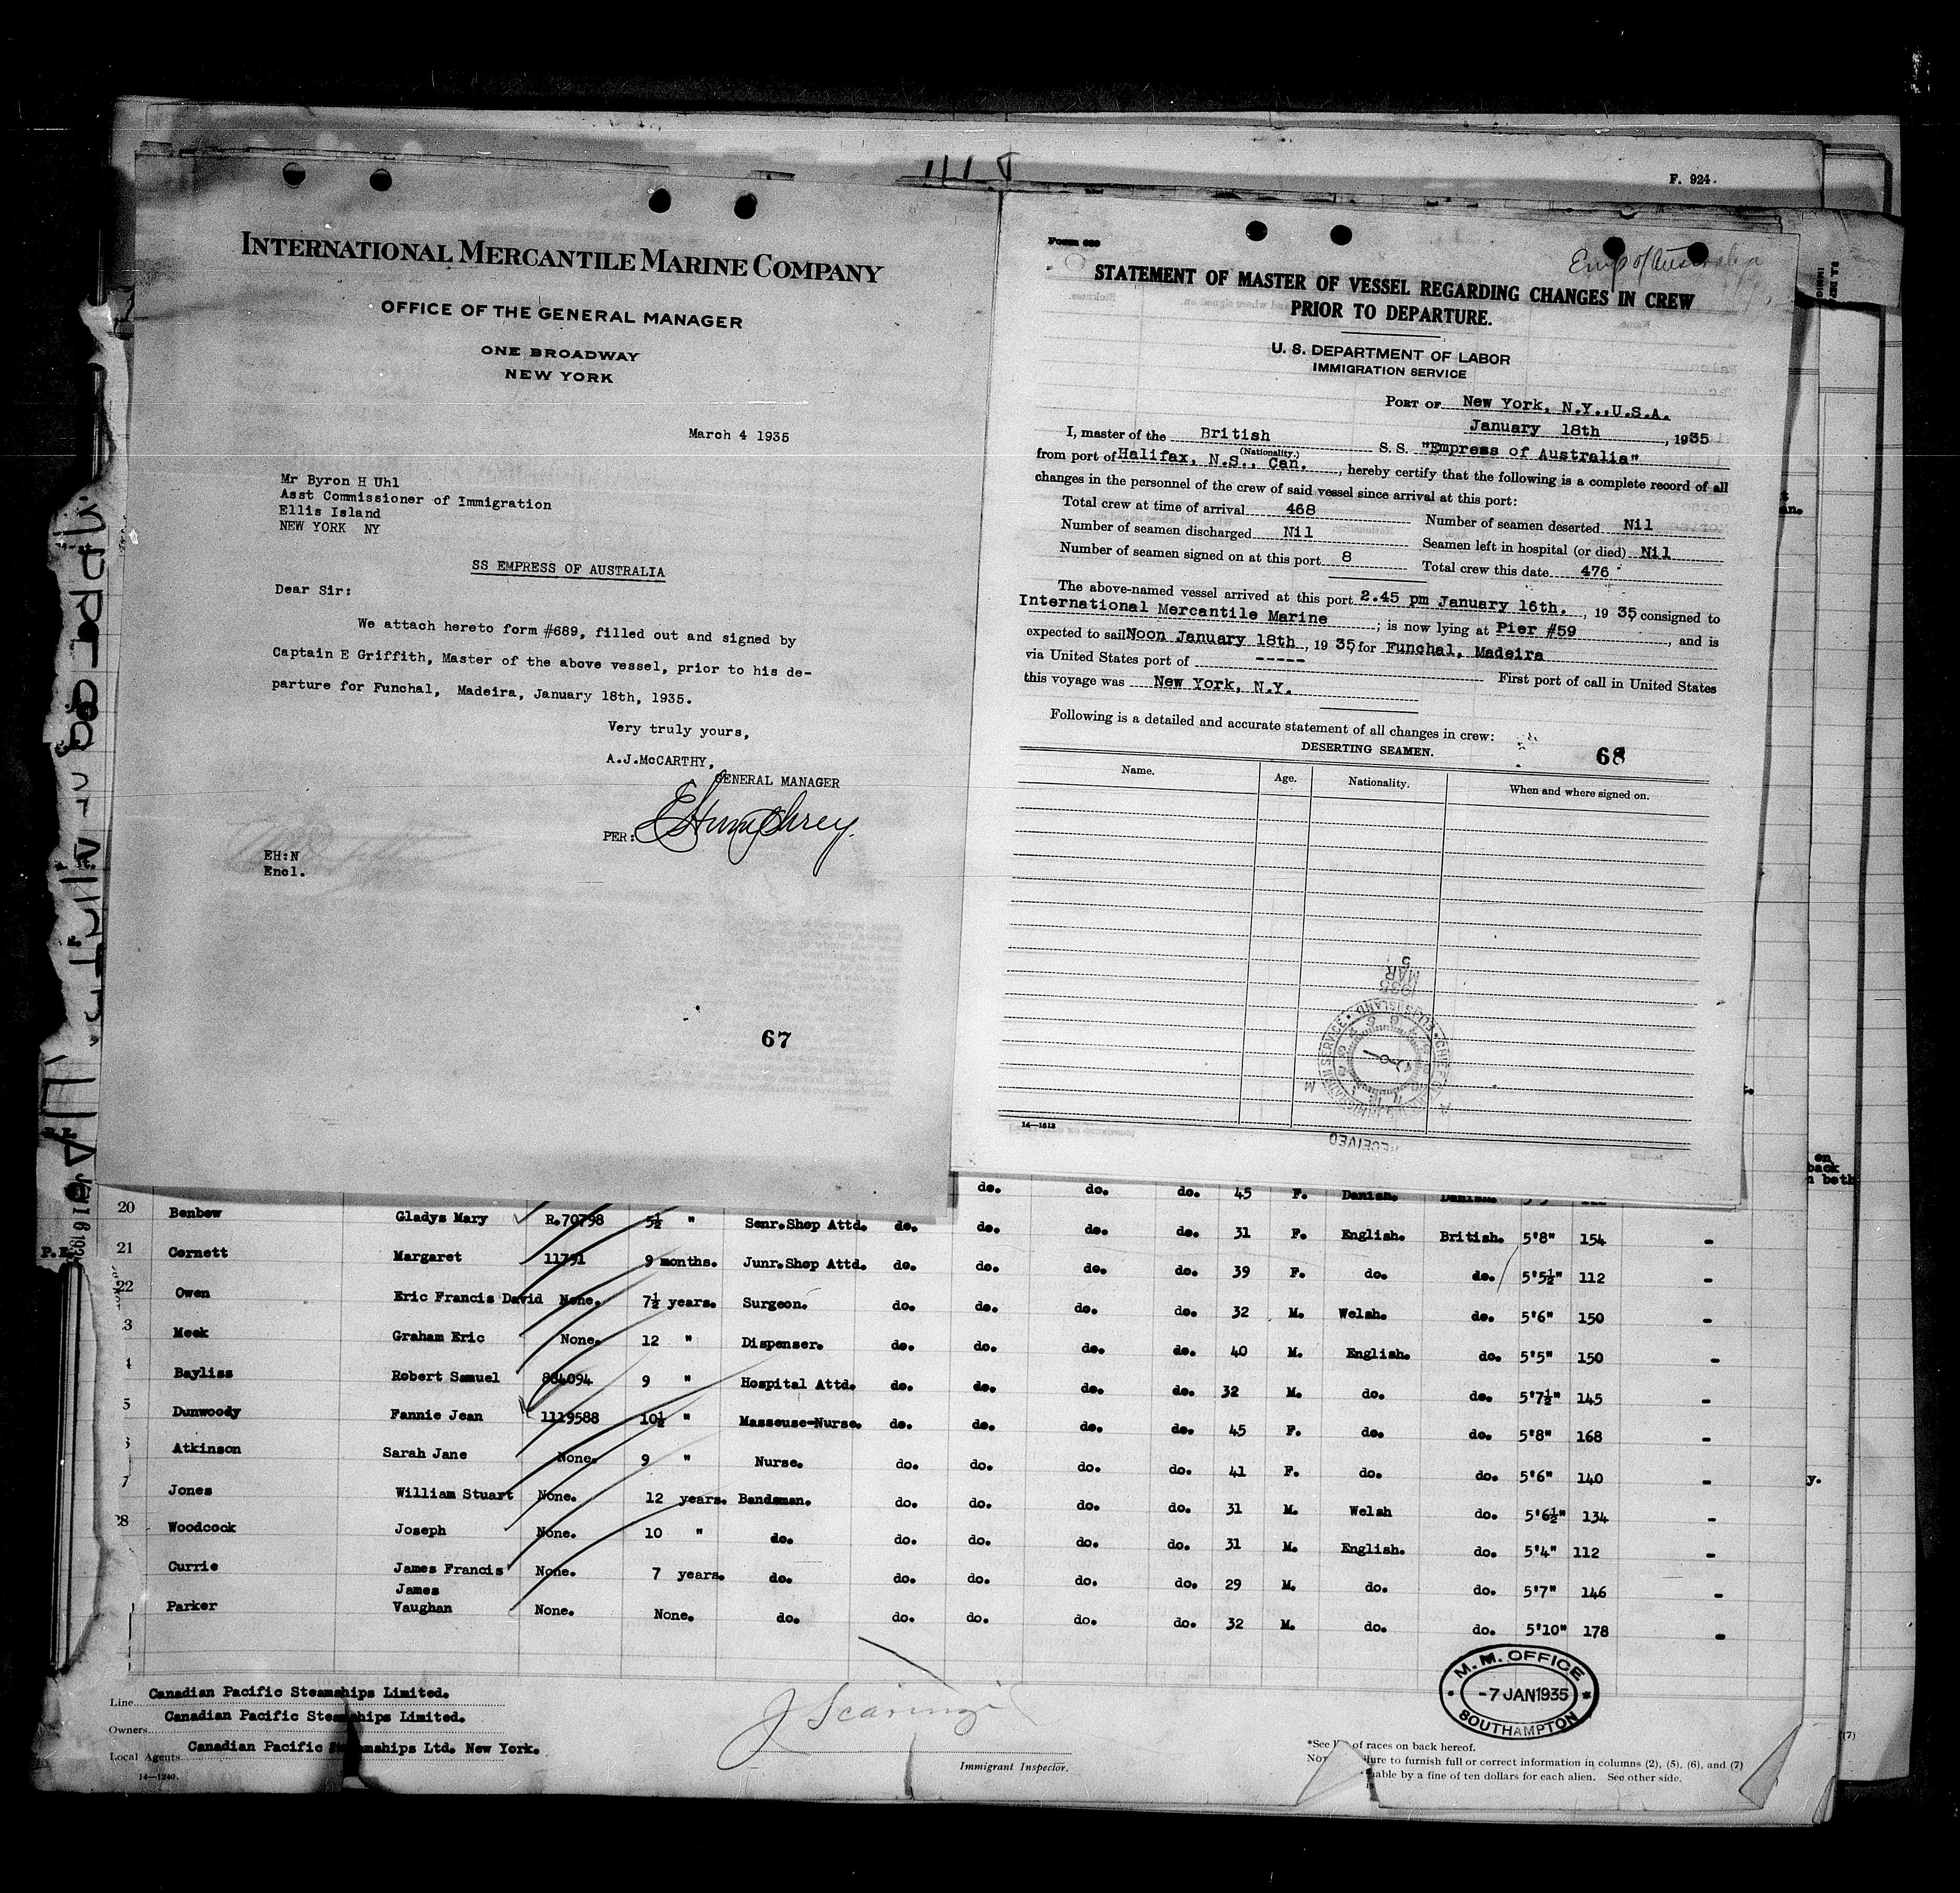 F. 924.
INTERNATIONAL MERCANTILE MARINE COMPANY
OFFICE OF THE GENERAL MANAGER
ONE BROADWAY
NEW YORK
March 4 1935
Mr Byron H Uhl
Asst Commissioner of Immigration
Ellis Island
NEW YORK NY
SS EMPRESS OF AUSTRALIA
Dear Sir:
We attach hereto form #689, filled out and signed by
Captain E Griffith, Master of the above vessel, prior to his de-
parture for Funchal, Madeira, January 18th, 1935.
Very truly yours,
A.J.McCARTHY,
GENERAL MANAGER
PER: EHumphrey
EH:N
Encl.
67
Form 689
Emp of Australia
STATEMENT OF MASTER OF VESSEL REGARDING CHANGES IN CREW
PRIOR TO DEPARTURE.
U. S. DEPARTMENT OF LABOR
IMMIGRATION SERVICE
PORT OF New York, N.Y.,U.S.A.
January 18th, 1935
I, master of the British S. S. "Empress of Australia"
(Nationality.)
from port of Halifax, N.S., Can., hereby certify that the following is a complete record of all
changes in the personnel of the crew of said vessel since arrival at this port:
Total crew at time of arrival 468 Number of seamen deserted Nil
Number of seamen discharged Nil Seamen left in hospital (or died) Nil
Number of seamen signed on at this port 8 Total crew this date 476
The above-named vessel arrived at this port 2.45 pm January 16th., 1935, consigned to
International Mercantile Marine; is now lying at Pier #59, and is
expected to sail Noon January 18th, 1935, for Funchal, Madeira
via United States port of ----- First port of call in United States
this voyage was New York, N.Y.
Following is a detailed and accurate statement of all changes in crew:
68
DESERTING SEAMEN.
Name. Age. Nationality. When and where signed on.
1935
MAR
5
IMMIGRATION SERVICE
ELLIS ISLAND
RECEIVED
14—1613
do. do. do. 45 F. Danish. Danish.
20 Benbow Gladys Mary R.70798 5½ " Senr.Shop Attd. do. do. do. do. 31 F. English. British. 5'8" 154 -
21 Cornett Margaret 11791 9 months. Junr.Shop Attd. do. do. do. do. 39 F. do. do. 5'5½" 112 -
22 Owen Eric Francis David None. 7½ years. Surgeon. do. do. do. do. 32 M. Welsh. do. 5'6" 150 -
3 Meek Graham Eric None. 12 " Dispenser. do. do. do. do. 40 M. English. do. 5'5" 150 -
4 Bayliss Robert Samuel 864094 9 " Hospital Attd. do. do. do. do. 32 M. do. do. 5'7½" 145 -
5 Dunwoody Fannie Jean 1119588 10½ " Masseuse-Nurse. do. do. do. do. 45 F. do. do. 5'8" 168 -
Atkinson Sarah Jane None. 9 " Nurse. do. do. do. do. 41 F. do. do. 5'6" 140 -
7 Jones William Stuart None. 12 years. Bandsman. do. do. do. do. 31 M. Welsh do. 5'6½" 134 -
28 Woodcock Joseph None. 10 " do. do. do. do. do. 31 M. English. do. 5'4" 112 -
Currie James Francis None. 7 years. do. do. do. do. do. 29 M. do. do. 5'7" 146 -
James
Parker Vaughan None. None. do. do. do. do. do. 32 M. do. do. 5'10" 178 -
M. M. OFFICE
-7 JAN 1935
SOUTHAMPTON
Line Canadian Pacific Steamships Limited.
Owners Canadian Pacific Steamships Limited.
Local Agents Canadian Pacific Steamships Ltd. New York.
14—1240.
J Scaringi
Immigrant Inspector.
*See of races on back hereof.
to furnish full or correct information in columns (2), (5), (6), and (7)
by a fine of ten dollars for each alien. See other side.